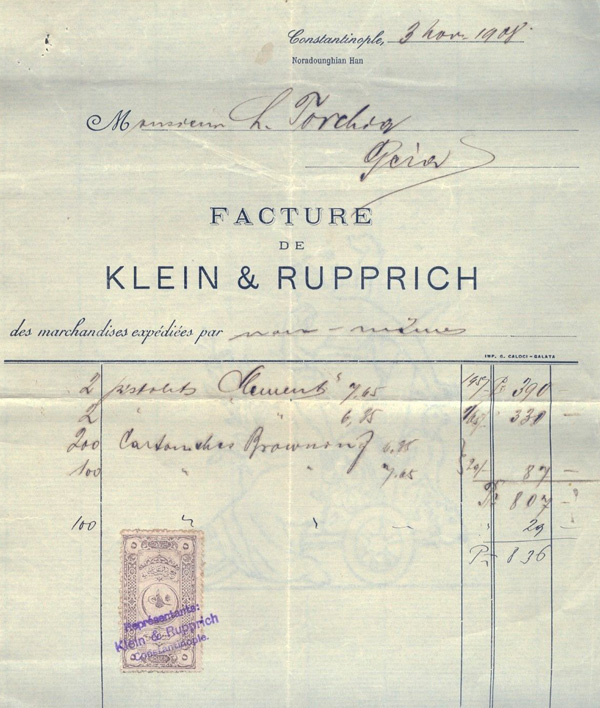 Constantinople, 3 Nov. 1908.
Noradounghian Han
Monsieur L. Torchia
Péra
FACTURE
DE
KLEIN & RUPPRICH
des marchandises expédiées par nous-mêmes
IMP. G. CALOCI - GALATA
2 pistolets "Clement" 7,65 195/ Ps 390 —
2 " " 6,35 330 —
200 Cartouches Browning 6.35
100 " " 7.65 29/ 87 —
Ps 807 —
100 " " — 29 —
Ps 836
Représentants:
Klein & Rupprich
Constantinople.